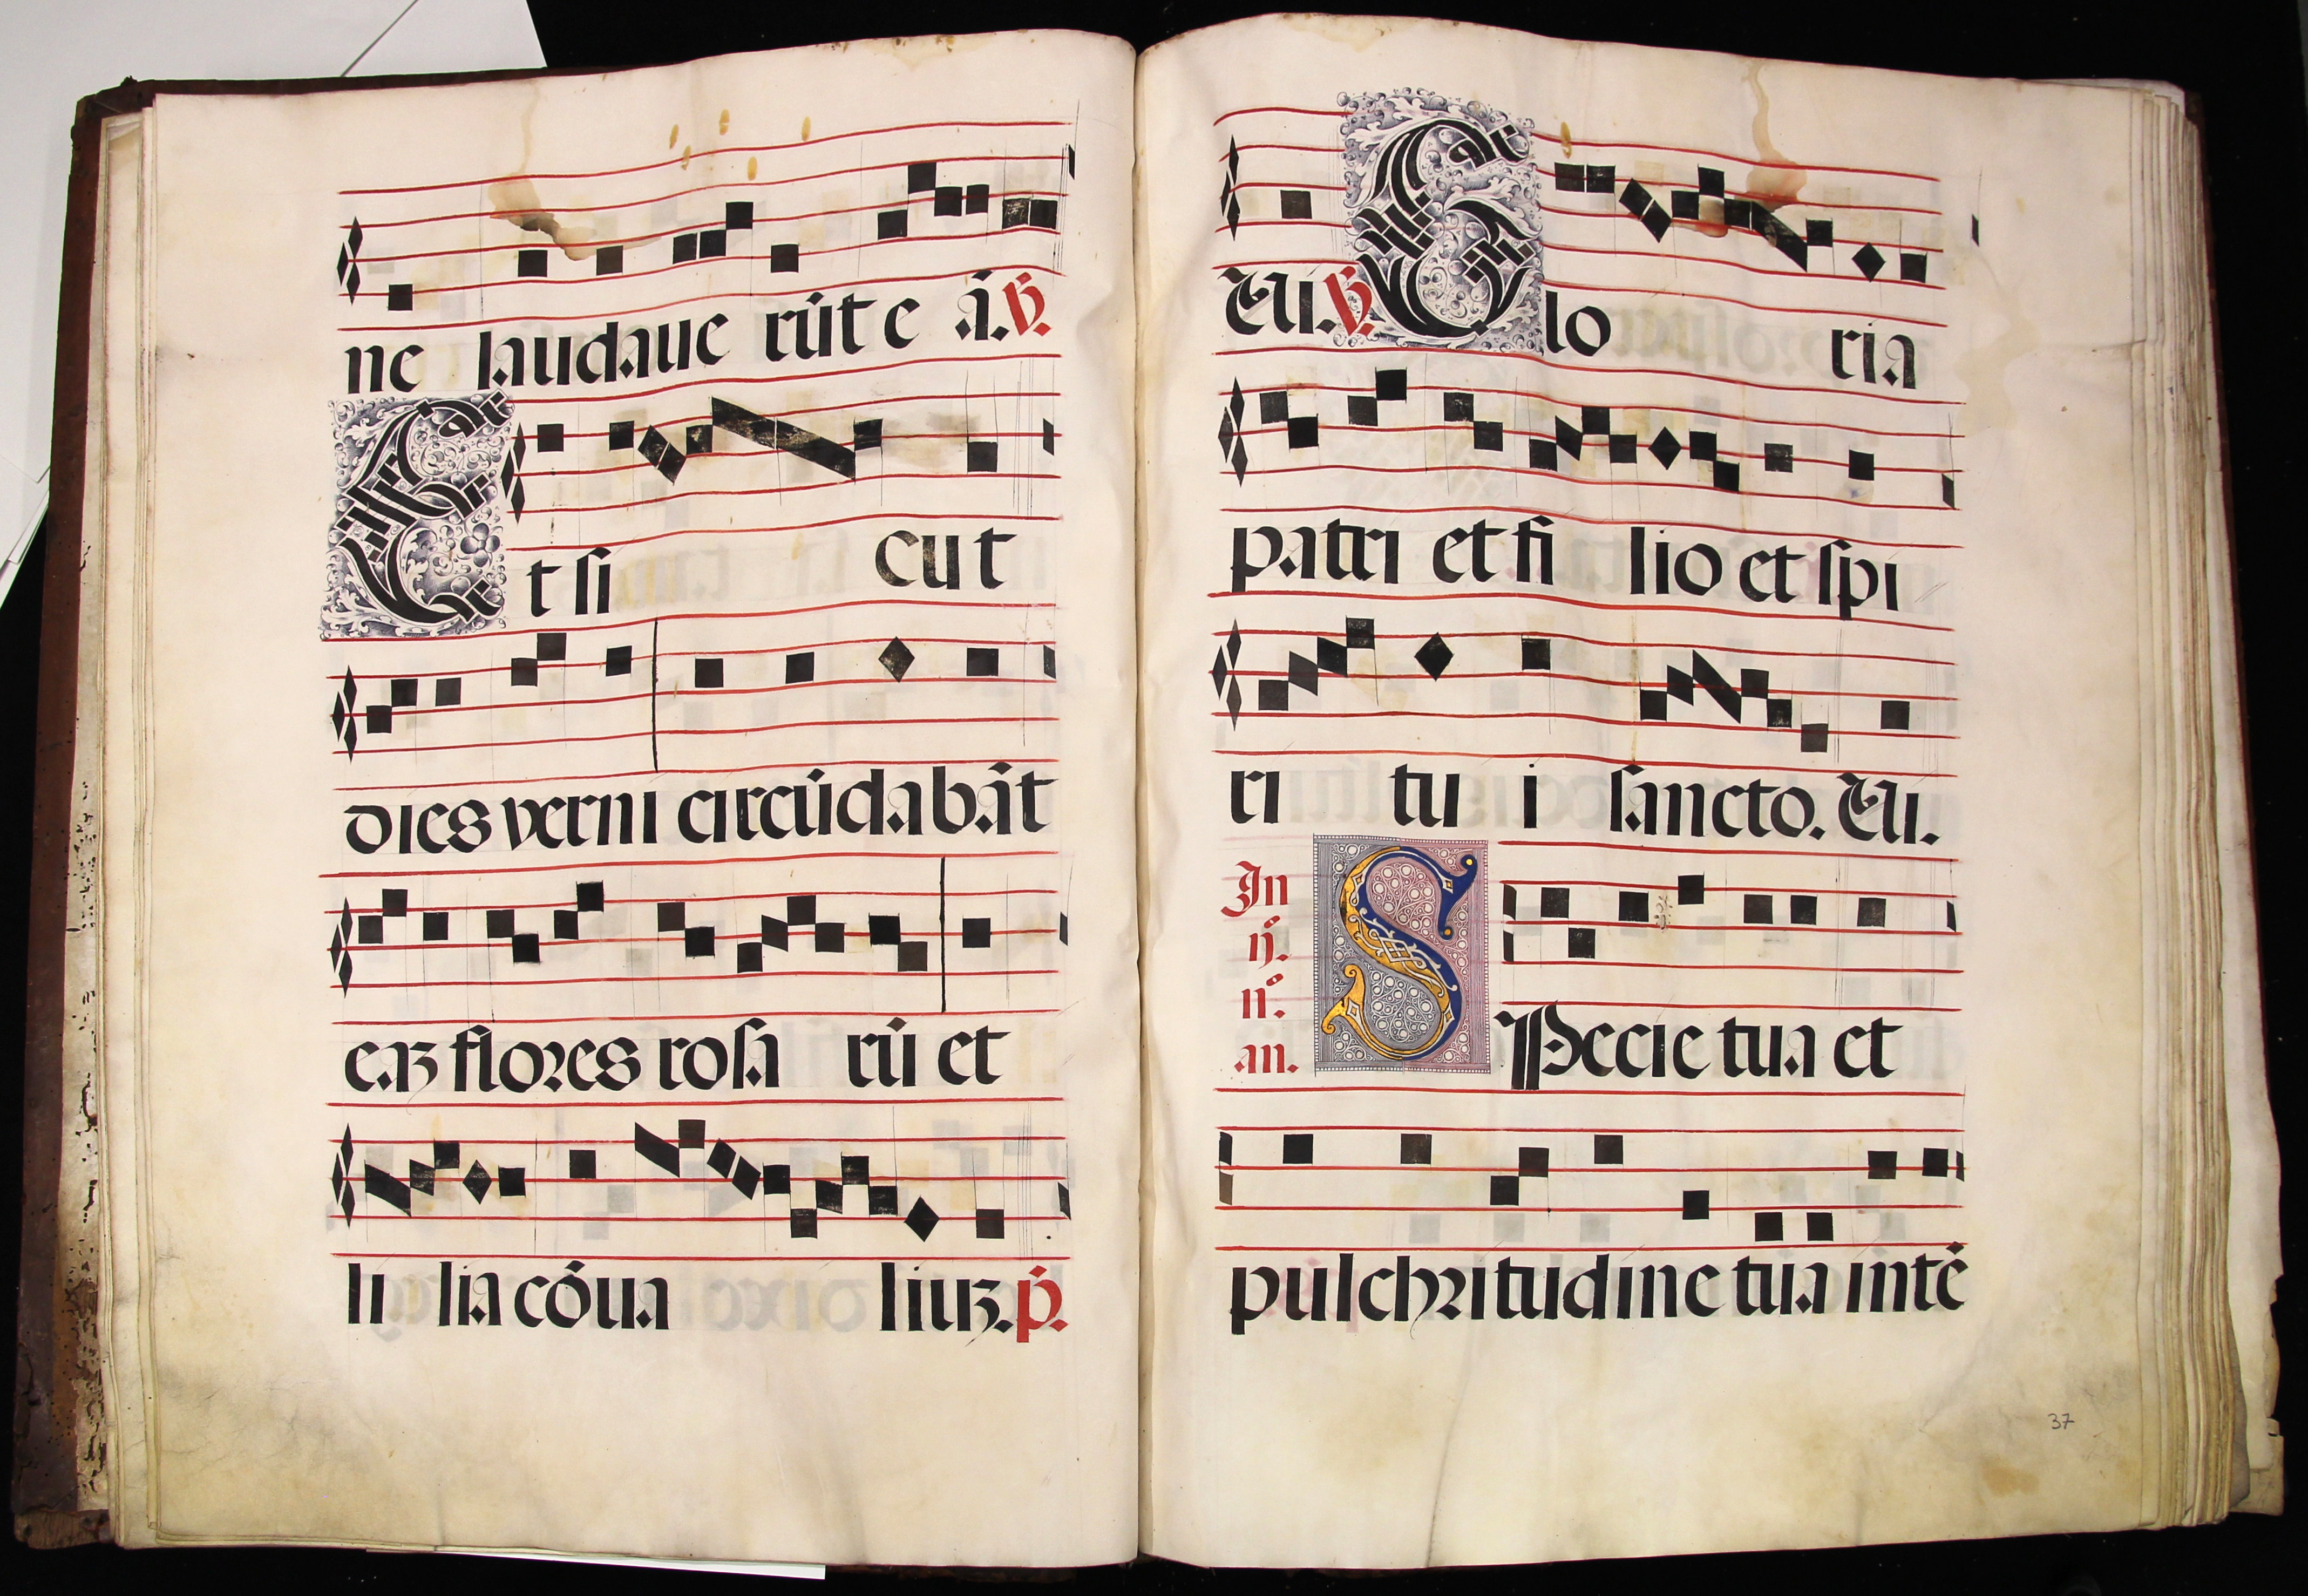 ne laudaue rūt e ā. ℣.
Et si cut
dies verni circūdabāt
eaʒ flores rosa rū et
li lia cōua liuʒ. p̄.
Eui. ℣. Glo ria
patri et fi lio et spi
ri tu i sancto. Eui.
In
ij.
n°.
an.
SPecie tua et
pulchritudine tua intē
37